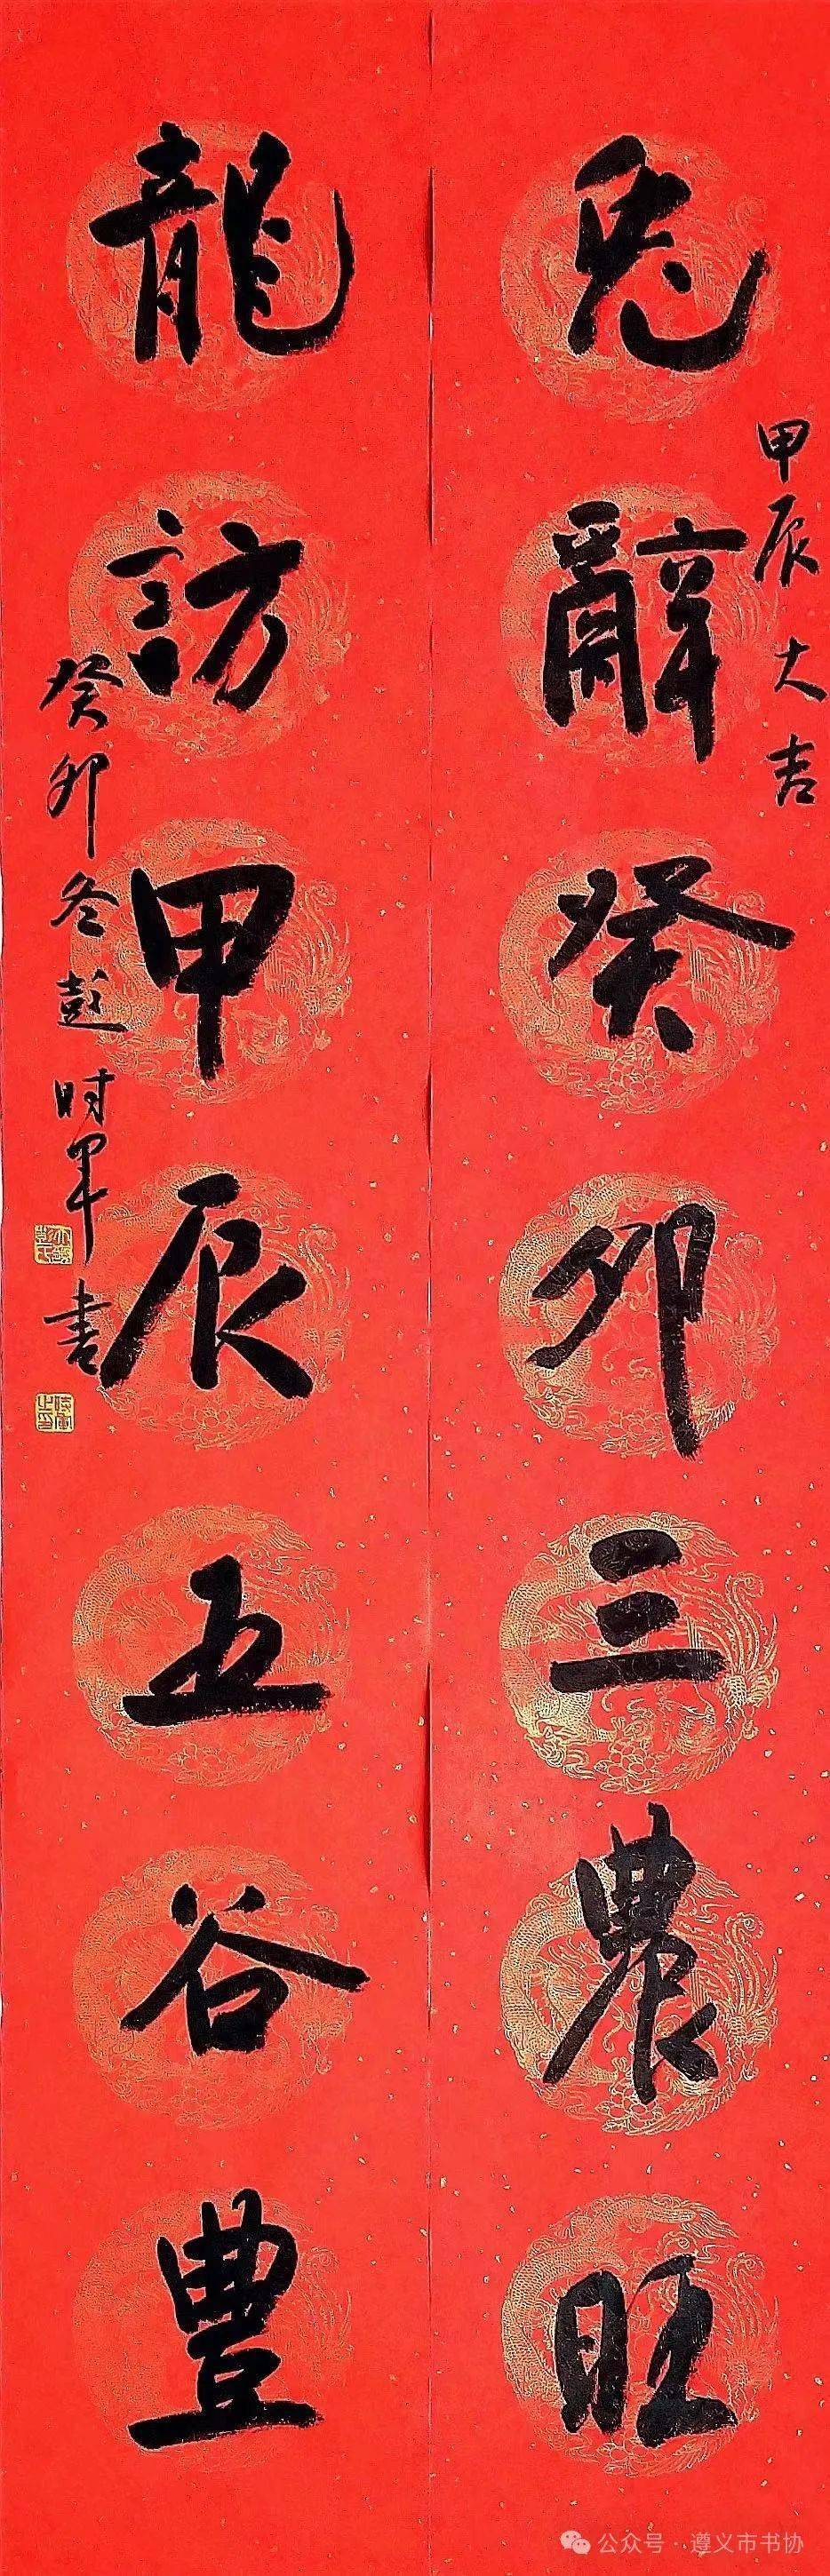 甲辰大吉
兎辭癸卯三農旺
龍訪甲辰五谷豊
癸卯冬彭时军书
公众号·遵义市书协